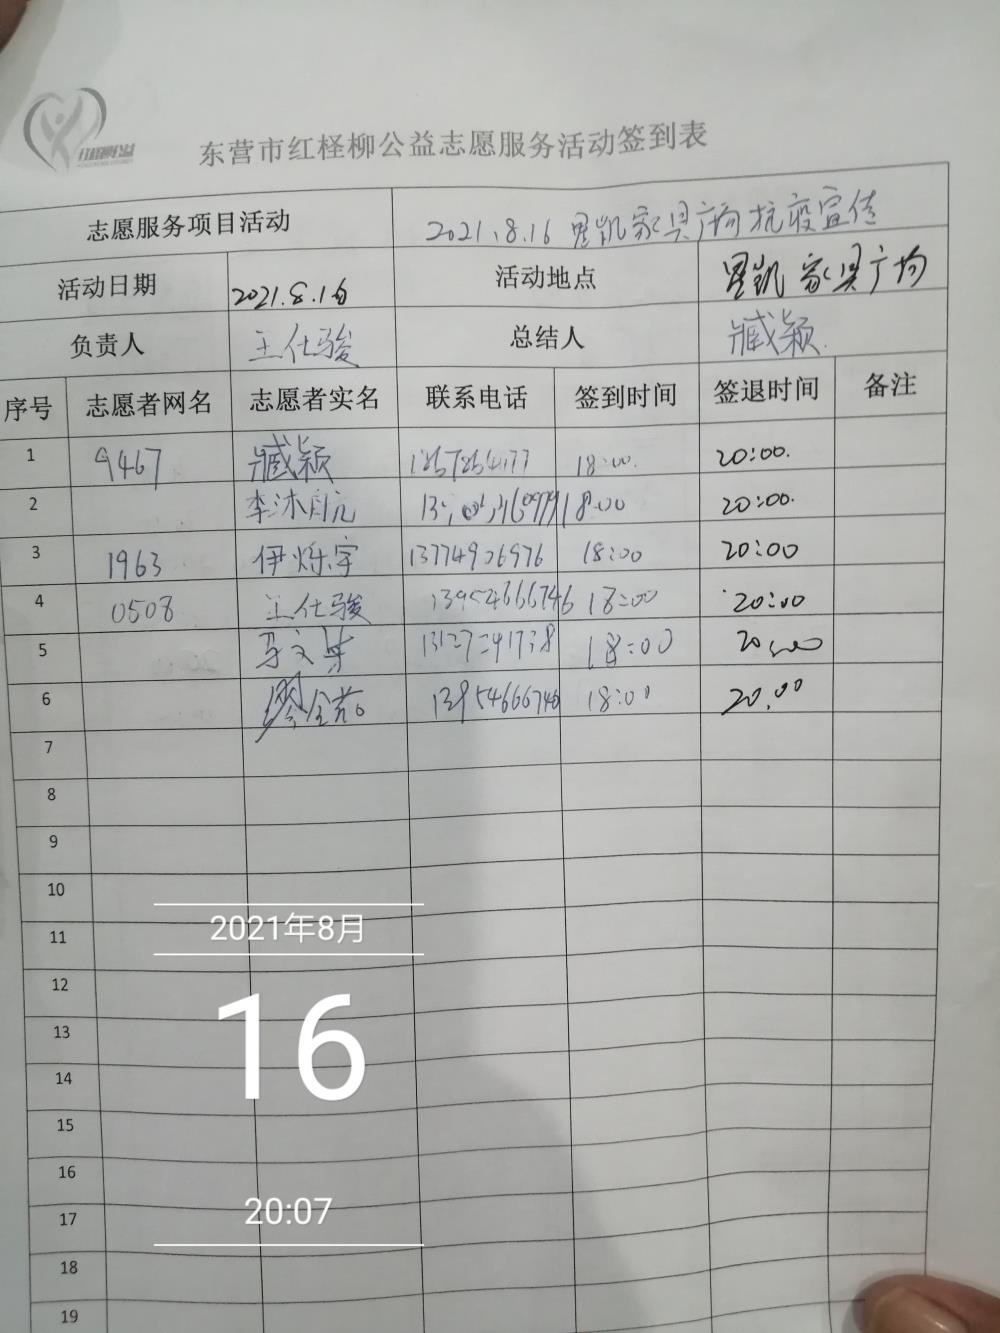 红柽柳公益
东营市红柽柳公益志愿服务活动签到表
志愿服务项目活动 2021.8.16 星凯家具广场抗疫宣传
活动日期 2021.8.16 活动地点 星凯家具广场
负责人 王仕骏 总结人 臧颖
序号 志愿者网名 志愿者实名 联系电话 签到时间 签退时间 备注
1 9467 臧颖 18:00. 20:00.
2 李沐 18:00 20:00.
3 1963 伊烁宇 13774926976 18:00 20:00
4 0508 王仕骏 13954666746 18:00 20:00
5 18:00 20:00
6 13954666746 18:00 20.00
7
8
9
10
11
12
13
14
15
16
17
18
19
2021年8月
16
20:07